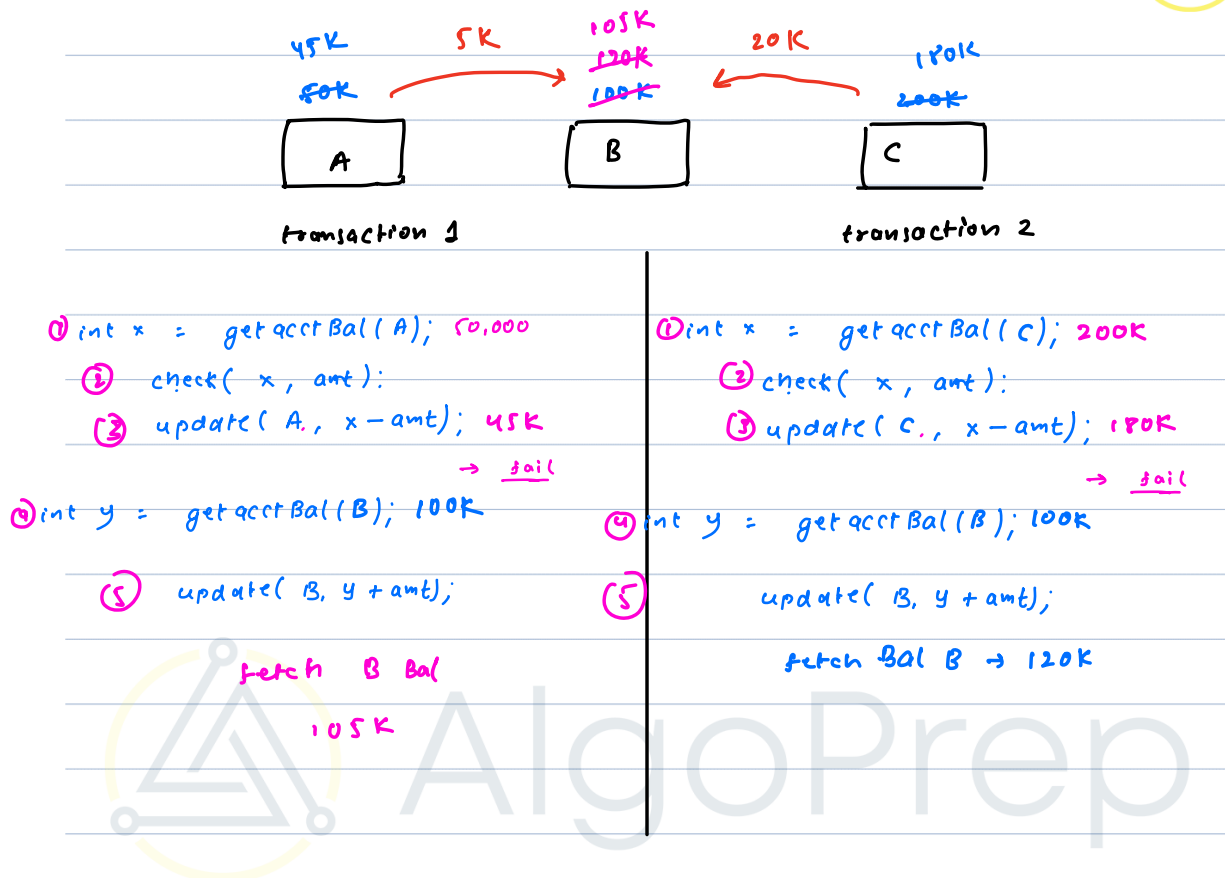 45K 5K 105K 20K 180K
50K 120K 200K
100K
A B C
transaction 1 transaction 2
① int x = getacctBal(A); 50,000
② check( x, amt):
③ update( A., x - amt); 45K
→ fail
④ int y = getacctBal(B); 100K
⑤ update( B, y + amt);
fetch B Bal
105K
① int x = getacctBal(C); 200K
② check( x, amt):
③ update( C., x - amt); 180K
→ fail
④ int y = getacctBal(B); 100K
⑤ update( B, y + amt);
fetch Bal B → 120K
AlgoPrep